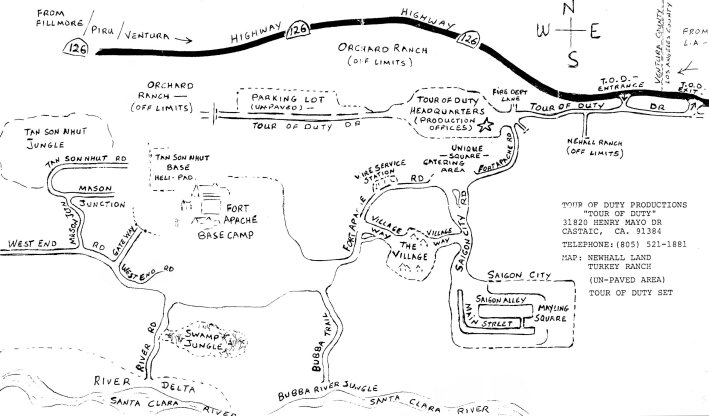 FROM
FILLMORE/
PIRU/
VENTURA
126
HIGHWAY
126
HIGHWAY
126
ORCHARD RANCH
(OFF LIMITS)
N
W E
S
VENTURA COUNTY
LOS ANGELES COUNTY
FROM
L.A.
T.O.D.
ENTRANCE
T.O.D.
EXIT
ORCHARD
RANCH
(OFF LIMITS)
PARKING LOT
(UN-PAVED)
TOUR OF DUTY DR
TOUR OF DUTY
HEADQUARTERS
(PRODUCTION
OFFICES)
FIRE DEPT
LANE
TOUR OF DUTY DR
NEHALL RANCH
(OFF LIMITS)
UNIQUE
SQUARE
CATERING
AREA
FORT APACHE RD
TAN SON NHUT
JUNGLE
TAN SON NHUT RD
TAN SON NHUT
BASE
HELI-PAD
MASON
JUNCTION
MASON JCTN RD
FORT
APACHE
BASE CAMP
WIRE SERVICE
STATION
FORT APACHE RD
VILLAGE
WAY
VILLAGE
WAY
THE
VILLAGE
SAIGON CITY RD
WEST END
GATEWAY
WEST END RD
SAIGON CITY
SAIGON ALLEY
MAIN STREET
MAYLING
SQUARE
RIVER RD
SWAMP
JUNGLE
BUBBA TRAIL
RIVER DELTA
BUBBA RIVER JUNGLE
SANTA CLARA RIVER
SANTA CLARA RIVER
TOUR OF DUTY PRODUCTIONS
"TOUR OF DUTY"
31820 HENRY MAYO DR
CASTAIC, CA. 91384
TELEPHONE:(805) 521-1881
MAP: NEWHALL LAND
TURKEY RANCH
(UN-PAVED AREA)
TOUR OF DUTY SET